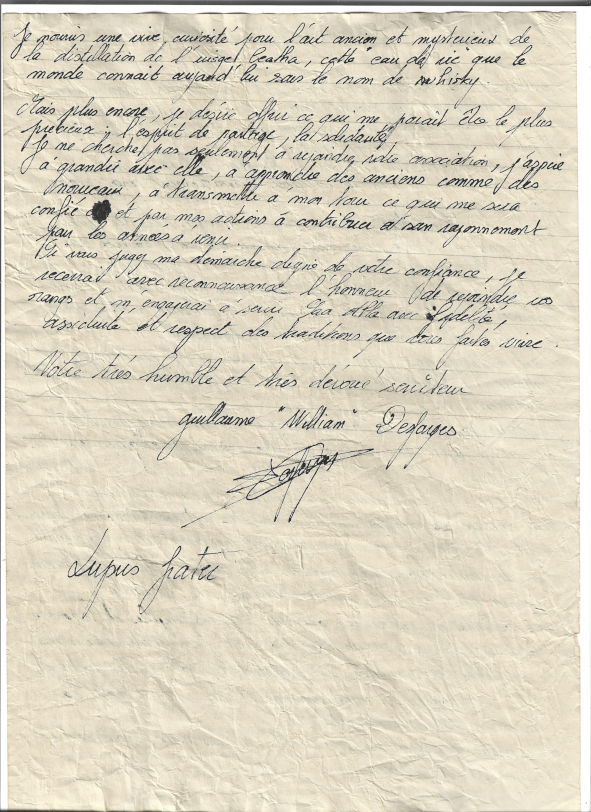 Je nourris une vive curiosité pour l'art ancien et mysterieux de
la distillation de l'uisge beatha, cette "eau de vie" que le
monde connait aujourd'hui sous le nom de whisky.
Mais plus encore, je désire offrir ce qui me parait être le plus
precieux : l'esprit de partage, la solidarité
Je ne cherche pas seulement à rejoindre votre association, j'aspire
à grandir avec elle, à apprendre des anciens comme des
nouveaux, à transmettre à mon tour ce qui me sera
confié et par mes actions à contribuer à son rayonnement
pour les années à venir.
Si vous jugez ma demarche digne de votre confiance, je
recevrai avec reconnaissance l'honneur de rejoindre vos
rangs et m'engagerai à servir avec fidelité,
assiduité et respect des traditions que vous faites vivre.
Votre très humble et très dévoué serviteur
guillaume "William" Desforges
Lupus